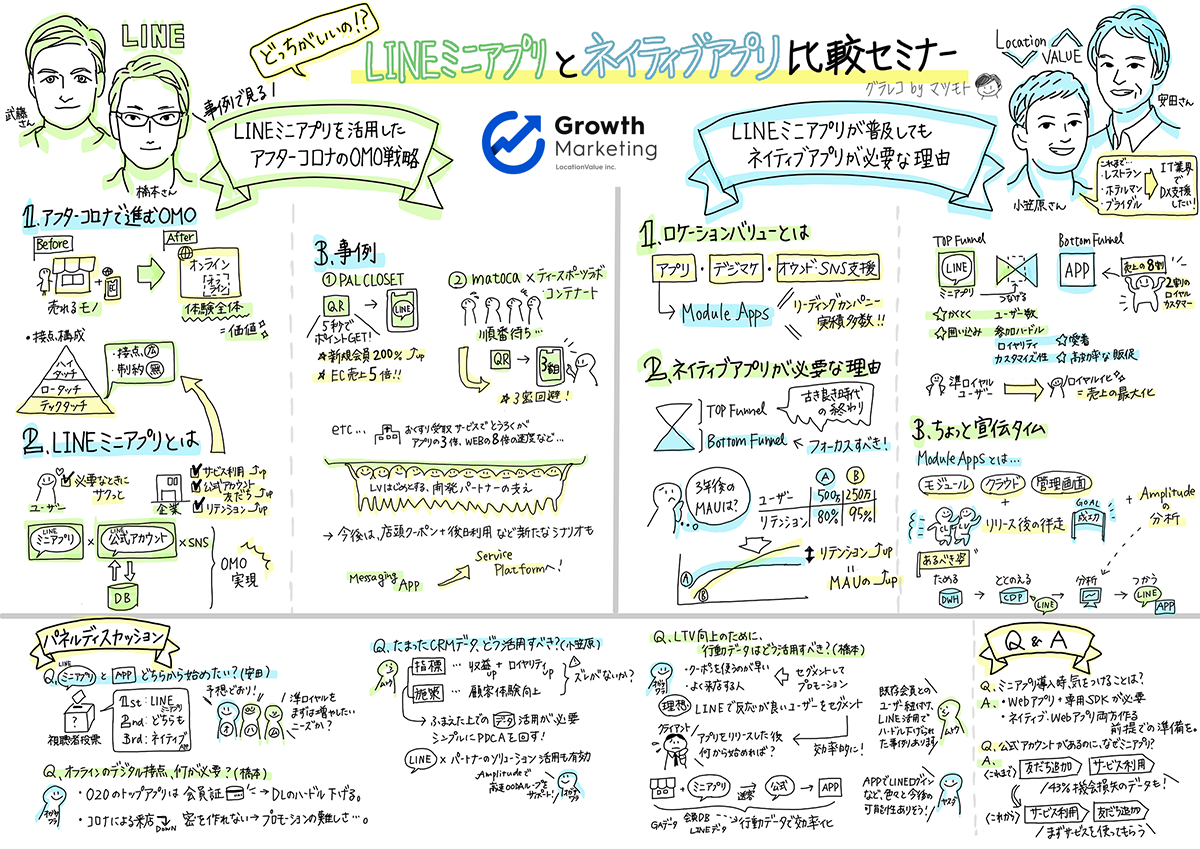 どっちがいいの!?
LINEミニアプリとネイティブアプリ比較セミナー
グラレコ by マツモト
LINE
武藤さん
橋本さん
事例で見る!
LINEミニアプリを活用した
アフターコロナのOMO戦略
Growth
Marketing
LocationValue inc.
LINEミニアプリが普及しても
ネイティブアプリが必要な理由
Location
VALUE
安田さん
小笠原さん
これまで…
・レストラン
・ホテルマン
・ブライダル
IT業界で
DX支援
したい!
1.アフターコロナで進むOMO
Before
After
オンライン
オフライン
売れるモノ
体験全体
=価値
・接点構成
ハイ
タッチ
ロータッチ
テックタッチ
・接点 広
・制約 無
2.LINEミニアプリとは
必要なときに
サクっと
ユーザー
企業
サービス利用 up
公式アカウント
友だち up
リテンション up
LINE
ミニアプリ
×
LINE
公式アカウント
×SNS
DB
OMO
実現
3.事例
① PAL CLOSET
QR
LINE
5秒で
ポイントGET!
☆新規会員200% up
☆EC売上5倍!!
② matoca×ティースポーツラボ
コンテナート
順番待ち…
QR
3番目
☆3密回避!
etc…
おくすり受取サービスでとうろくが
アプリの3倍、WEBの8倍の速度など…
LVはじめとする、開発パートナーの支え
→今後は、店頭クーポン+後日利用など新たなシナリオも
Messaging APP
Service
Platformへ!
1.ロケーションバリューとは
アプリ・デジマケ・オウンドSNS支援
Module Apps
リーディングカンパニー
実績多数!!
2.ネイティブアプリが必要な理由
TOP Funnel
Bottom Funnel
古き良き時代
の終わり
フォーカスすべき!
3年後の
MAUは?
A
B
ユーザー
500万
250万
リテンション
80%
95%
A
B
リテンション up
MAUの up
TOP Funnel
Bottom Funnel
LINE
ミニアプリ
つなげる
APP
売上の8割
2割の
ロイヤル
カスタマー
☆かくとく
ユーザー数
☆囲い込み
参加ハードル
ロイヤリティ
☆愛着
カスタマイズ性
☆高効率な販促
準ロイヤル
ユーザー
ロイヤル化
=売上の最大化
3.ちょっと宣伝タイム
Module Appsとは…
モジュール
クラウド
管理画面
+Amplitude
の分析
CL
LV
リリース後の伴走
GOAL
成功
あるべき姿
ためる
ととのえる
分析
つかう
DWH
CDP
LINE
LINE
APP
パネルディスカッション
Q.LINEミニアプリとAPPどちらから始めたい?(安田)
?
視聴者投票
1st:LINEミニアプリ
2nd:どちらも
3rd:ネイティブ
予想どおり!
オ
ハ
ム
準ロイヤルを
まずは増やしたい
ニーズか?
Q.オンラインのデジタル接点、何が必要?(橋本)
・O2Oのトップアプリは会員証→DLのハードル下げる。
・コロナによる来店DOWN 密を作れない→プロモーションの難しさ…。
Q.たまったCRMデータ、どう活用すべき?(小笠原)
ムトウ
指標…収益up+ロイヤリティup
施策…顧客体験向上
ズレがないか?
ふまえた上でのデータ活用が必要
シンプルにPDCAを回す!
LINE×パートナーのソリューション活用も有効
Amplitudeで
高速OODAループを
サポート!
Q.LTV向上のために、
行動データはどう活用すべき?(橋本)
・クーポンを使うのが早い
・よく来店する人
セグメントして
プロモーション
理想
LINEで反応が良いユーザーをセグメント
クライアント
アプリをリリースした後
何から始めれば?
効率的に!
+ミニアプリ
送客
公式
APP
GAデータ
会員DB
LINEデータ
行動データで効率化
既存会員との
ユーザー紐付け、
LINE活用で
ハードル下げられ
た事例あります
ムトウ
APPでLINEログイン
など、色々と今後の
可能性ありそう!
ヤスダ
Q&A
Q.ミニアプリ導入時、気をつけることは?
A.・Webアプリ+専用SDKが必要
・ネイティブ、Webアプリ両方作る
前提での準備を。
Q.公式アカウントがあるのに、なぜミニアプリ?
A.
(これまで)
友だち追加
サービス利用
43%機会損失のデータも!
(これから)
サービス利用
友だち追加
まずサービスを使ってもらう